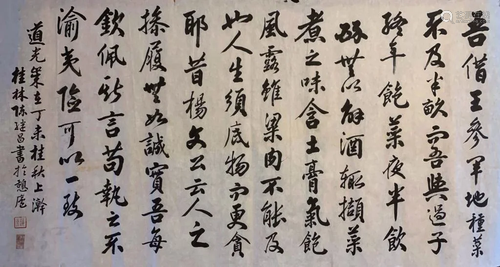 吾借王參軍地種菜
不及半畝而吾與過子
終年飽菜夜半飲
醉無以解酒輒擷菜
煮之味含土膏氣飽
風露雖粱肉不能及
也人生須底物而更貪
耶昔楊文公云人之
操履無如誠實吾每
欽佩斯言苟執之不
渝夷險可以一致
道光歲在丁未桂秋上澣
桂林陳繼昌書於